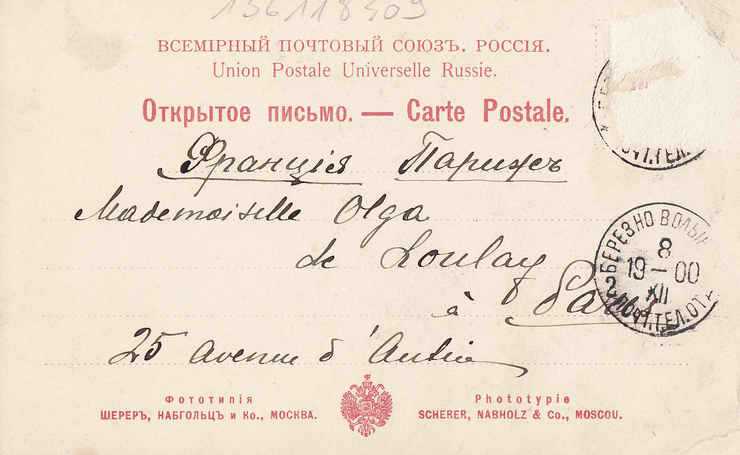 136118309
ВСЕМІРНЫЙ ПОЧТОВЫЙ СОЮЗЪ. РОССІЯ.
Union Postale Universelle Russie.
Открытое письмо. — Carte Postale.
Франція Парижъ
Mademoiselle Olga
de Loulay
à Paris
25 Avenue d'Antin
БЕРЕЗНО ВОЛЫН
8
19-00
XII
ПОЧТ.ТЕЛ.ОТ
ПОЧТ.ТЕЛ.
Фототипія
ШЕРЕРЪ, НАБГОЛЬЦЪ и Ко., МОСКВА.
Phototypie
SCHERER, NABHOLZ & Co., MOSCOU.